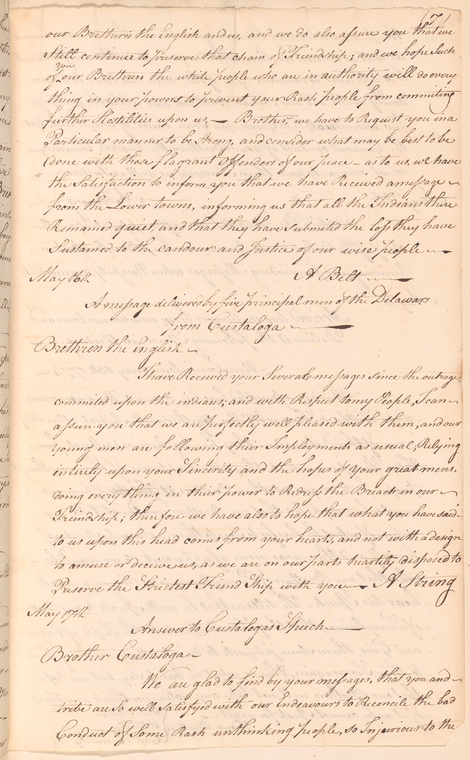 (7)
our Brethern the English and us, and we do also assure you that we
Still continue to preserve that chain of Friendship; and we hope Such
of you our Brethren the white people who are in authority will do every
thing in your powers to prevent your Rash people from commiting
further Hostilities upon us. — Brother, we have to Request you in a
Particular manner to be Strong, and consider what may be best to be
done with those flagrant Offenders of our peace — as to us, we have
the Satisfaction to inform you that we have Received a message
from the Lower towns, informing us that all the Indians there
Remained quiet, and that they have submitted the loss they have
Sustained to the candour and Justice of our wise people —
May 16th. A Belt —
A message delivered by five principal men of the Delawars
from Custaloga —
Brethren the English —
I have Received your Several messages since the outrage
commited upon the indians; and with Respect to my People, I can
assure you that we are perfectly well pleased with them, and our
young men are following their Imployments as usual, Relying
entirely upon your Sincerity and the hopes of your great mens,
doing every thing in their power to Redress the Breach in our
Friendship; therefore we have also to hope that what you have said
to us upon this head comes from your hearts, and not with a design
to amuse or deceive us, as we are on our parts heartily disposed to
Preserve the Strictest Friend Ship with you. — A String
May 17th.
Answer to Custalogas Speech —
Brother Custaloga —
We are glad to find by your messages, that you and
tribe are So well Satisfyed with our Endeavours to Reconcile the bad
Conduct of Some Rash unthinking people, so Injurious to the